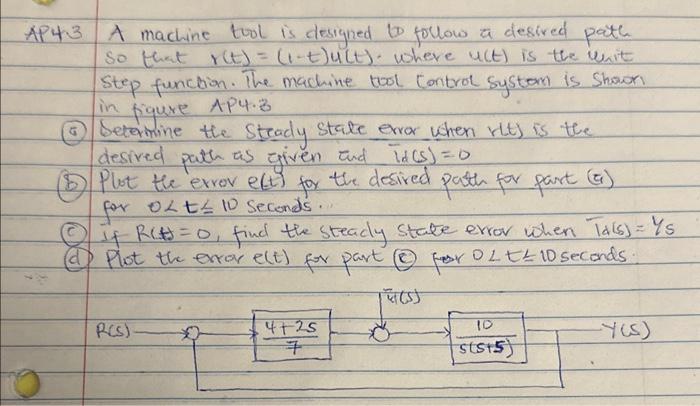 AP4.3 A machine tool is designed to follow a desired path
so that r(t) = (1-t)u(t). where u(t) is the unit
step function. The machine tool control system is shown
in figure AP4.3
(a) Determine the steady state error when r(t) is the
desired path as given and Td(s) = 0
(b) Plot the error e(t) for the desired path for part (a)
for 0 < t ≤ 10 seconds..
(c) If R(t) = 0, find the steady state error when Td(s) = 1/s
(d) Plot the error e(t) for part (c) for 0 < t ≤ 10 seconds.
Td(s)
R(s) 4+2s / 7 10 / s(s+5) Y(s)